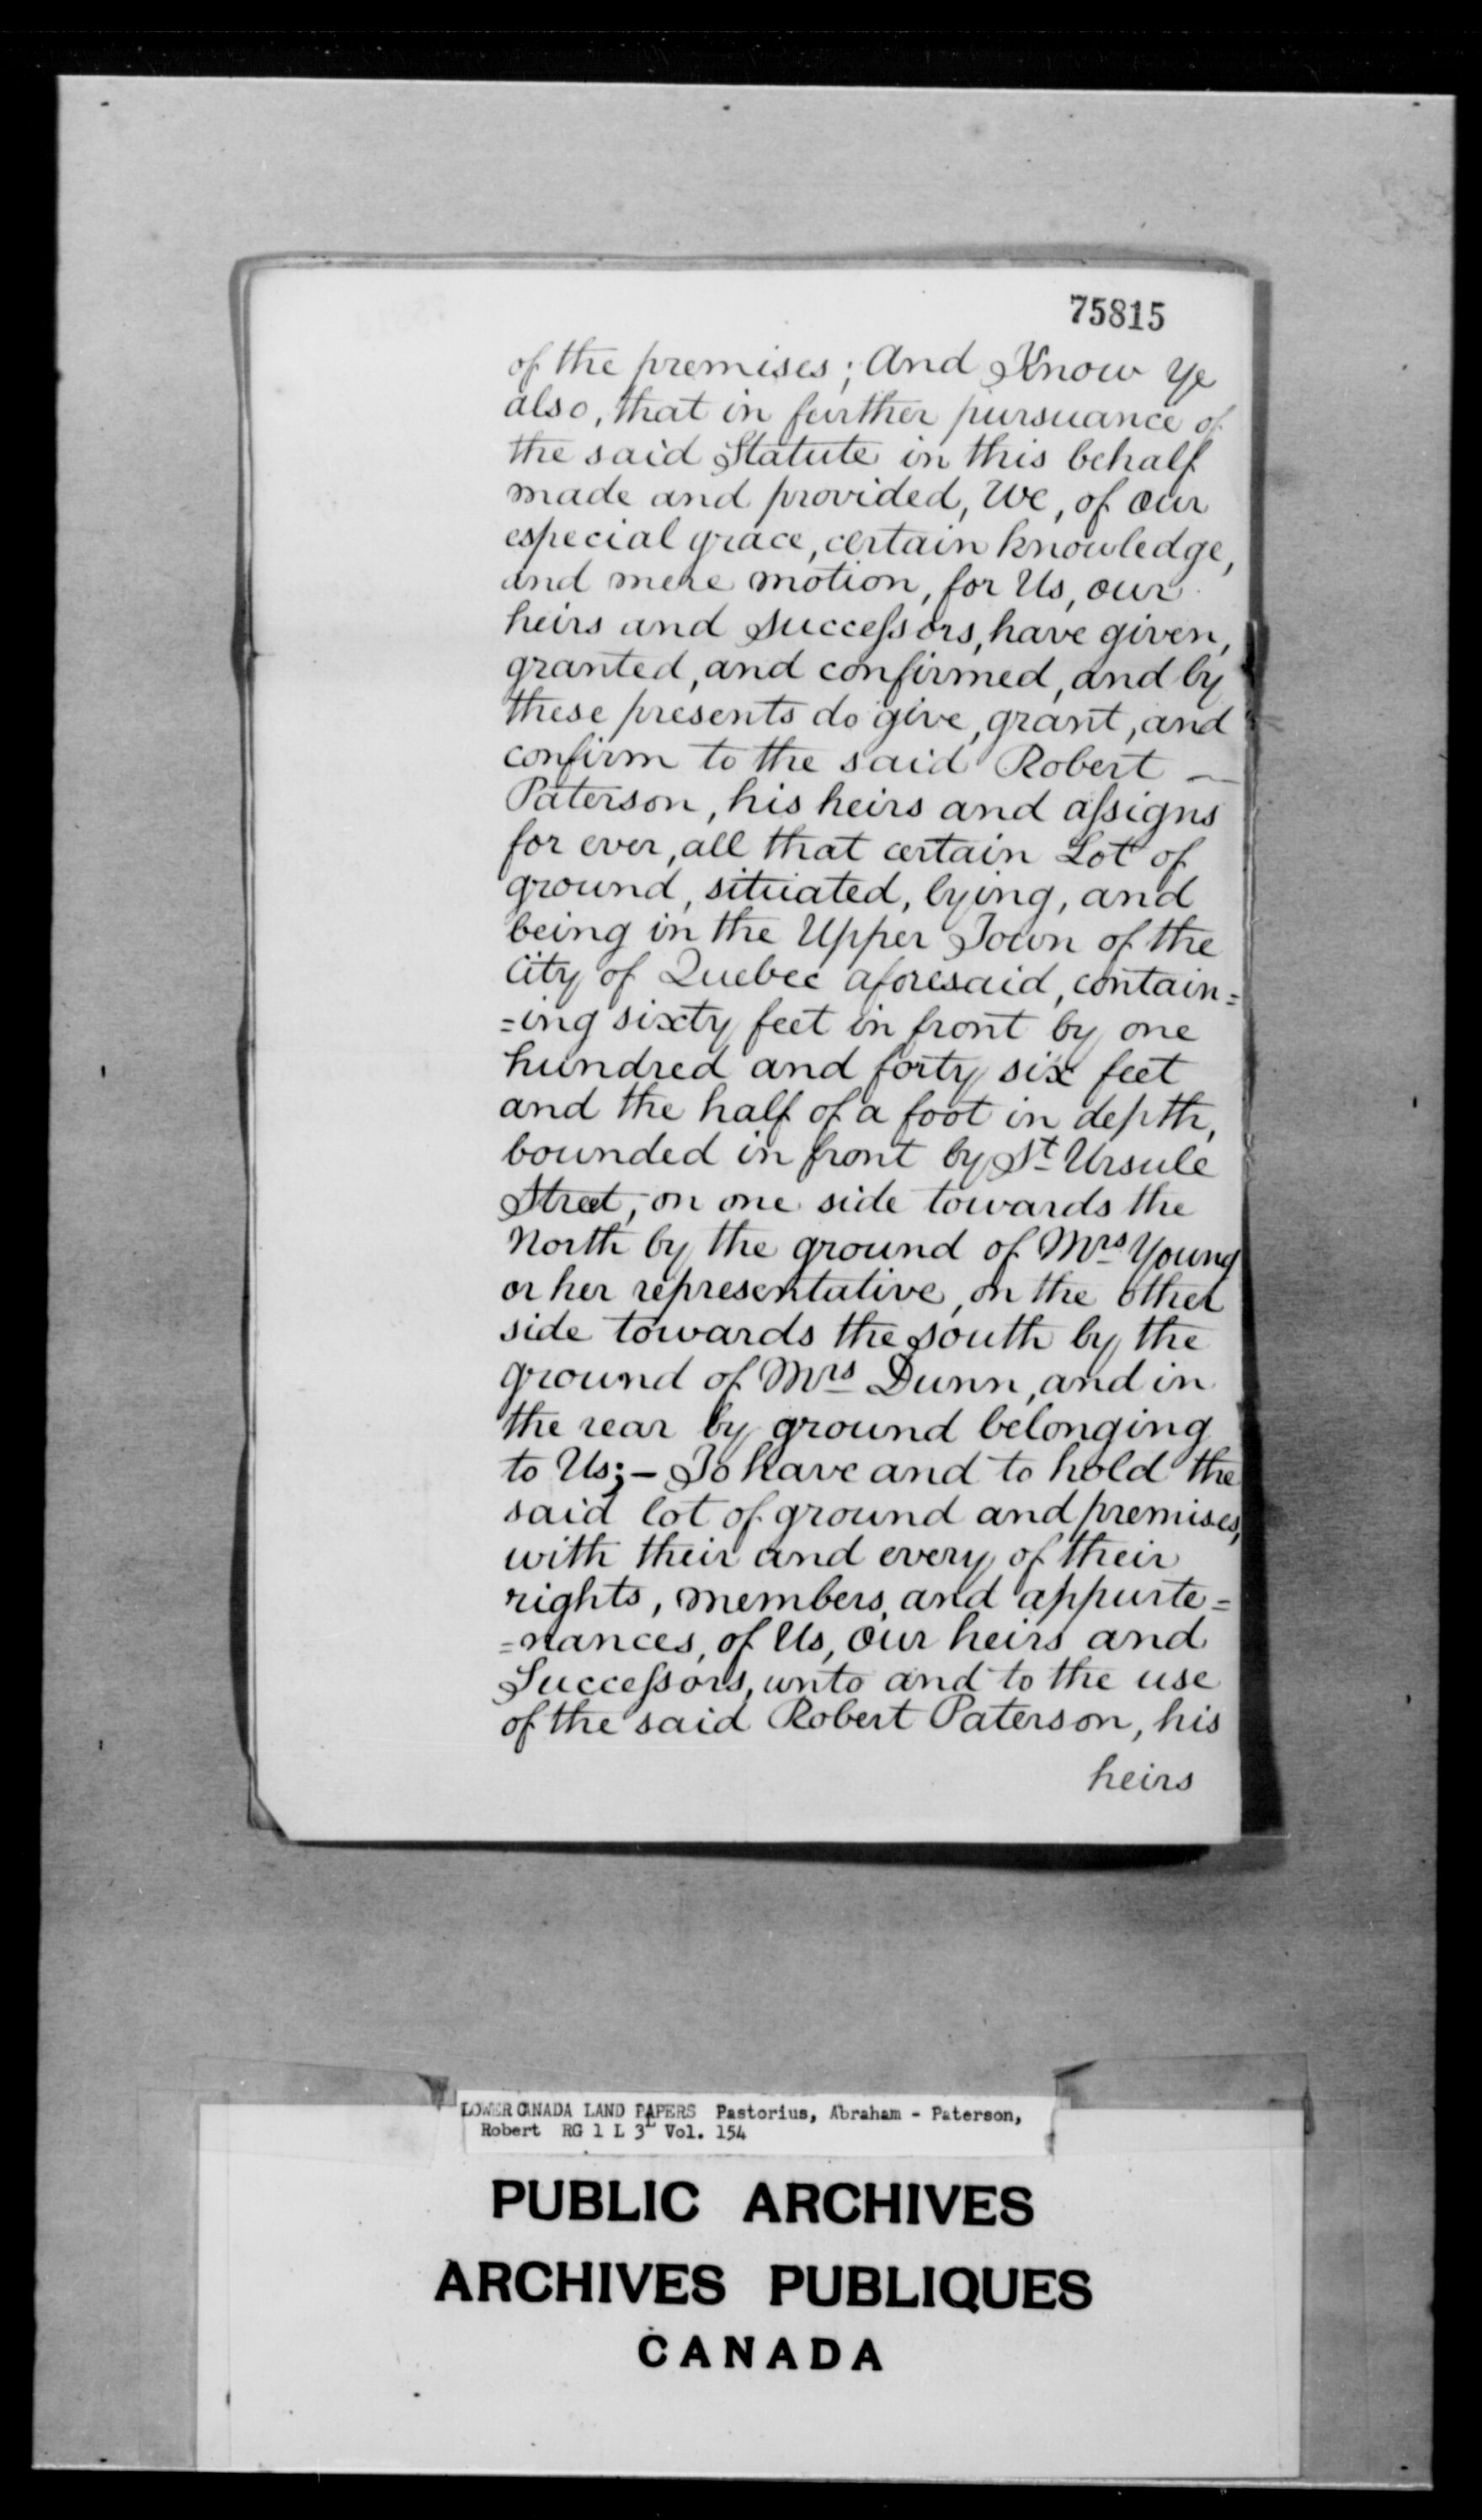 75815
of the premises; And Know Ye
also, that in further pursuance of
the said Statute in this behalf
made and provided, We, of our
especial grace, certain knowledge,
and mere motion, for Us, our
heirs and Successors, have given,
granted, and confirmed, and by
these presents do give, grant, and
confirm to the said Robert —
Paterson, his heirs and assigns
for ever, all that certain Lot of
ground, situated, lying, and
being in the Upper Town of the
City of Quebec aforesaid, contain=
=ing sixty feet in front by one
hundred and forty six feet
and the half of a foot in depth,
bounded in front by St Ursule
Street, on one side towards the
North by the ground of Mrs Young
or her representative, on the other
side towards the South by the
ground of Mrs Dunn, and in
the rear by ground belonging
to Us;— To have and to hold the
said lot of ground and premises,
with their and every of their
rights, members, and appurte=
=nances, of Us, our heirs and
Successors, unto and to the use
of the said Robert Paterson, his
heirs
LOWER CANADA LAND PAPERS Pastorius, Abraham - Paterson,
Robert RG 1 L 3L Vol. 154
PUBLIC ARCHIVES
ARCHIVES PUBLIQUES
CANADA